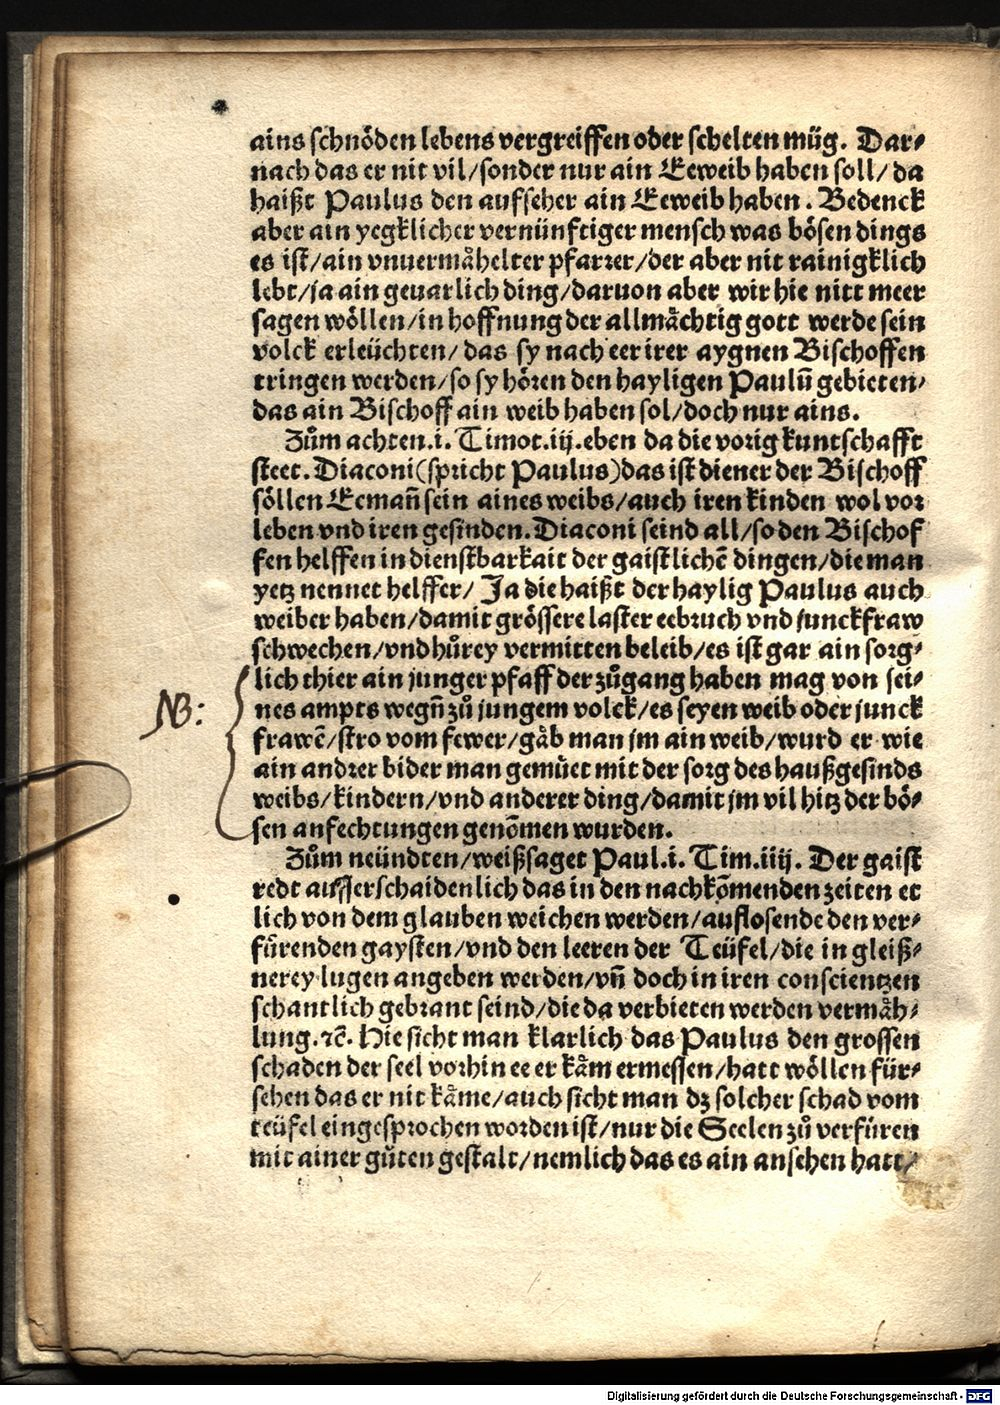 ains schnöden lebens vergreiffen oder schelten müg. Dar⸗
nach das er nit vil/sonder nur ain Eeweib haben soll/ da
haißt Paulus den aufseher ain Eeweib haben. Bedenck
aber ain yegklicher vernünfftiger mensch was bösen dings
es ist/ain vnuermåhelter pfarrer/der aber nit rainigklich
lebt/ja ain geuarlich ding/daruon aber wir hie nitt meer
sagen wöllen/in hoffnung der allmåchtig gott werde sein
volck erleüchten/ das sy nach eer irer aygnen Bischoffen
tringen werden/so sy hören den hayligen Paulū gebieten/
das ain Bischoff ain weib haben sol/doch nur ains.
Zům achten.i.Timot.iij.eben da die vorig kuntschafft
steet.Diaconi(spricht Paulus)das ist diener der Bischoff
söllen Eemañ sein aines weibs/auch iren kinden wol vor
leben vnd iren gesinden.Diaconi seind all/so den Bischof
fen helffen in dienstbarkait der gaistlichē dingen/die man
yetz nennet helffer/ Ja die haißt der haylig Paulus auch
weiber haben/damit grössere laster eebruch vnd junckfraw
schwechen/vnd hůrey vermitten beleib/es ist gar ain sorg⸗
lich thier ain junger pfaff der zůgang haben mag von sei⸗
NB: nes ampts wegñ zů jungem volck/es seyen weib oder junck
frawē/stro vom fewer/gåb man jm ain weib/wurd er wie
ain andrer bider man gemüet mit der sorg des haußgesinds
weibs/kindern/vnd anderer ding/damit jm vil hitz der bö⸗
sen anfechtungen genōmen wurden.
Zům neündten/weißsaget Paul.i.Tim.iiij. Der gaist
redt ausserschaidenlich das in den nachkōmenden zeiten et
lich von dem glauben weichen werden/auflosende den ver⸗
fürenden gaysten/vnd den leeren der Teüfel/die in gleiß⸗
nerey lugen angeben werden/vñ doch in iren conscientzen
schantlich gebrant seind/die da verbieten werden vermåh⸗
lung.ꝛc̄. Hie sicht man klarlich das Paulus den grossen
schaden der seel vorhin ee er kåm ermessen/hatt wöllen für⸗
sehen das er nit kåme/auch sicht man dz solcher schad vom
teüfel eingesprochen worden ist/nur die Seelen zů verfüren
mit ainer gůten gestalt/nemlich das es ain ansehen hatt/
Digitalisierung gefördert durch die Deutsche Forschungsgemeinschaft - DFG